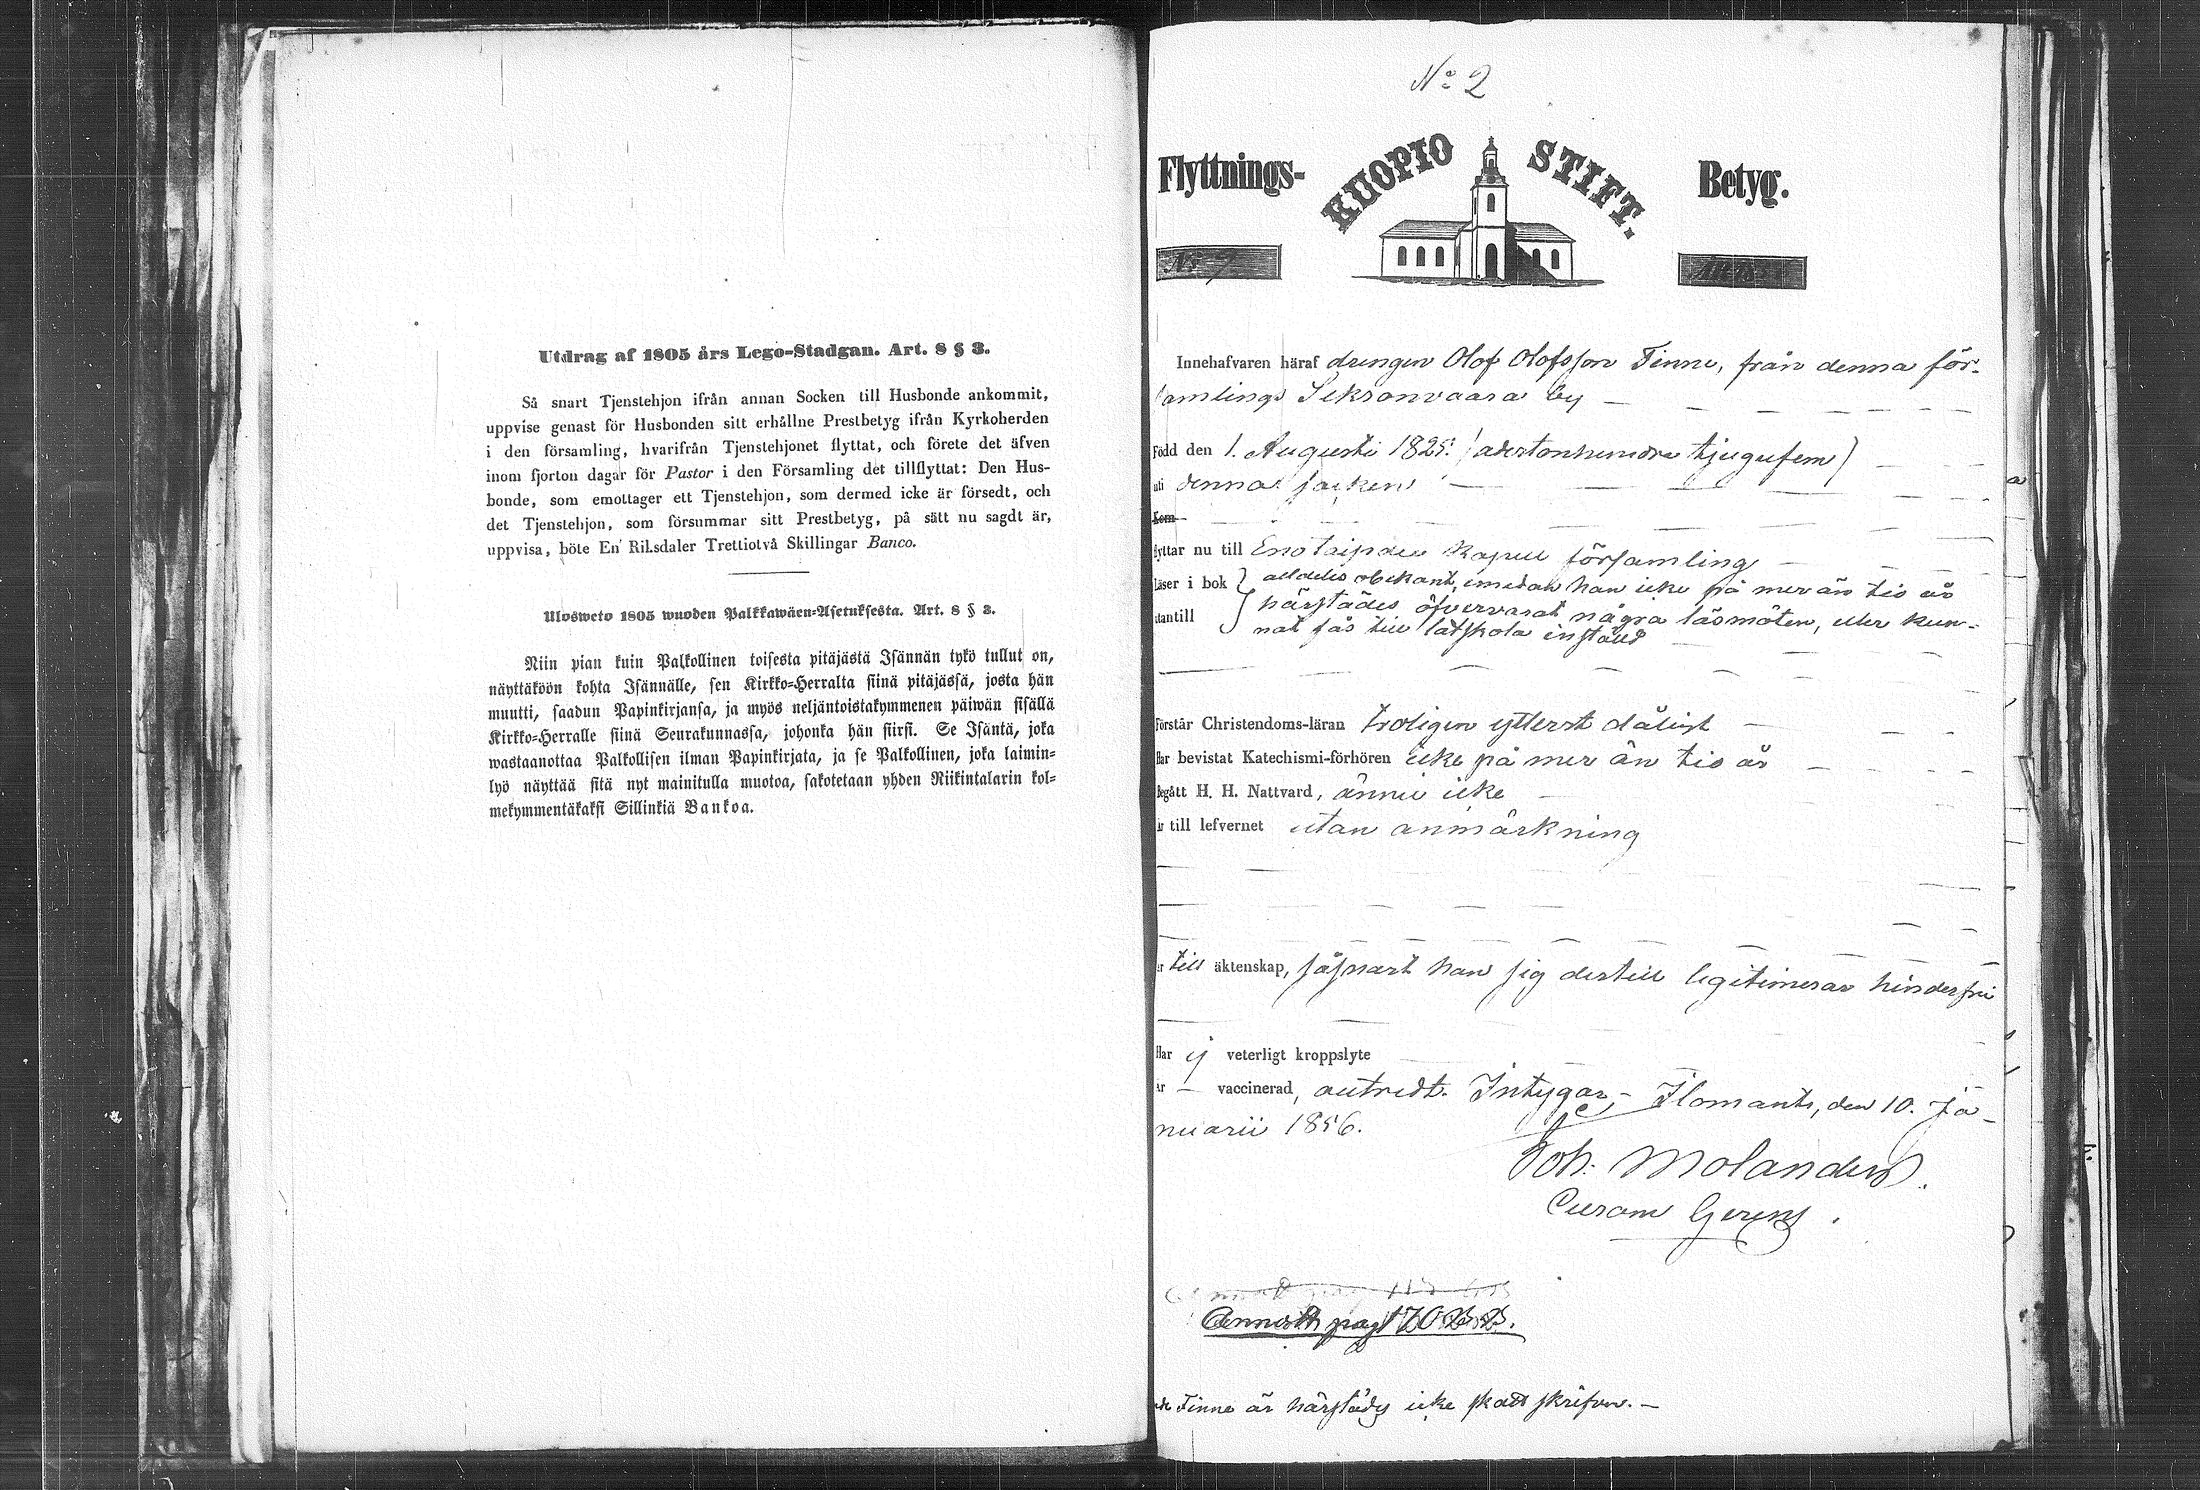 Utdrag af 1805 års Lego-Stadgan. Art. 8 § 3.
Så snart Tjenstehjon ifrån annan Socken till Husbonde ankommit,
uppvise genast för Husbonden sitt erhållne Prestbetyg ifrån Kyrkoherden
i den församling, hvarifrån Tjenstehjonet flyttat, och förete det äfven
inom fjorton dagar för Pastor i den Församling det tillflyttat: Den Hus-
bonde, som emottager ett Tjenstehjon, som dermed icke är försedt, och
det Tjenstehjon, som försummar sitt Prestbetyg, på sätt nu sagdt är,
uppvisa, böte En Riksdaler Trettiotvå Skillingar Banco.
Ulosweto 1805 wuoden Palkkawäen-Asetuksesta. Art. 8 § 3.
Niin pian kuin Palkollinen toisesta pitäjästä Isännän tykö tullut on,
näyttäköön kohta Isännälle, sen Kirkko-Herralta siinä pitäjässä, josta hän
muutti, saadun Papinkirjansa, ja myös neljäntoistakymmenen päiwän sisällä
Kirkko-Herralle siinä Seurakunnassa, johonka hän siirsi. Se Isäntä, joka
wastaanottaa Palkollisen ilman Papinkirjata, ja se Palkollinen, joka laimin-
lyö näyttää sitä nyt mainitulla muotoa, sakotetaan yhden Riikintalarin kol-
mekymmentäkaksi Sillinkiä Bankoa.
No 2
Flyttnings- KUOPIO STIFT. Betyg.
No 7
Innehafvaren häraf drengen Olof Olofsson Finne, från denna för-
samlings Sekronvaara by
Född den 1. Augusti 1825. (adertonhundra tjugufem)
uti denna socken
Kom
flyttar nu till Eno kapell församling
Läser i bok } alldeles obekant, emedan han icke på mer än tio år
utantill } härstädes öfvervarat några läsmöten, eller kun-
nat fås till lässkola inställd
Förstår Christendoms-läran troligen ytterst dåligt
Har bevistat Katechismi-förhören icke på mer än tio år
Begått H. H. Nattvard, ännu icke
Är till lefvernet utan anmärkning
är till äktenskap, såsnart han sig dertill legitimerar hinderfri
Har ej veterligt kroppslyte
Är — vaccinerad, attredt. Intygar, Ilomants, den 10. Ja-
nuarii 1856.
Joh. Molander
Curam Gerens.
Annoth pag 170
Finne är härstädes icke skattskrifven. —